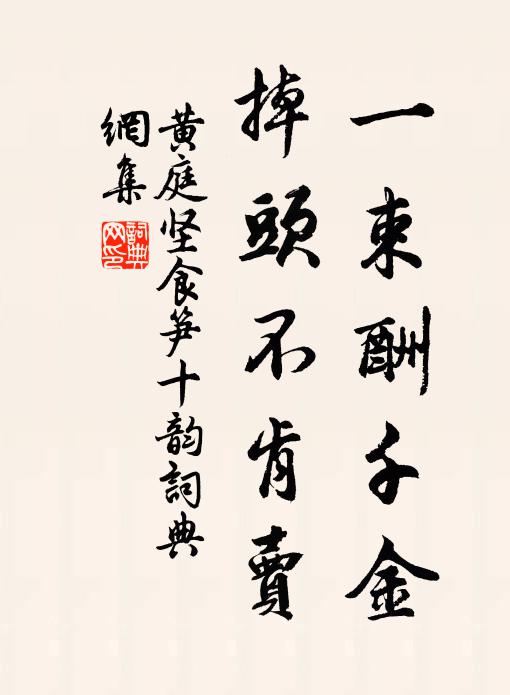 一束酬千金
掉頭不肯賣
黄庭坚食笋十韵詞典
網集
詞典网印